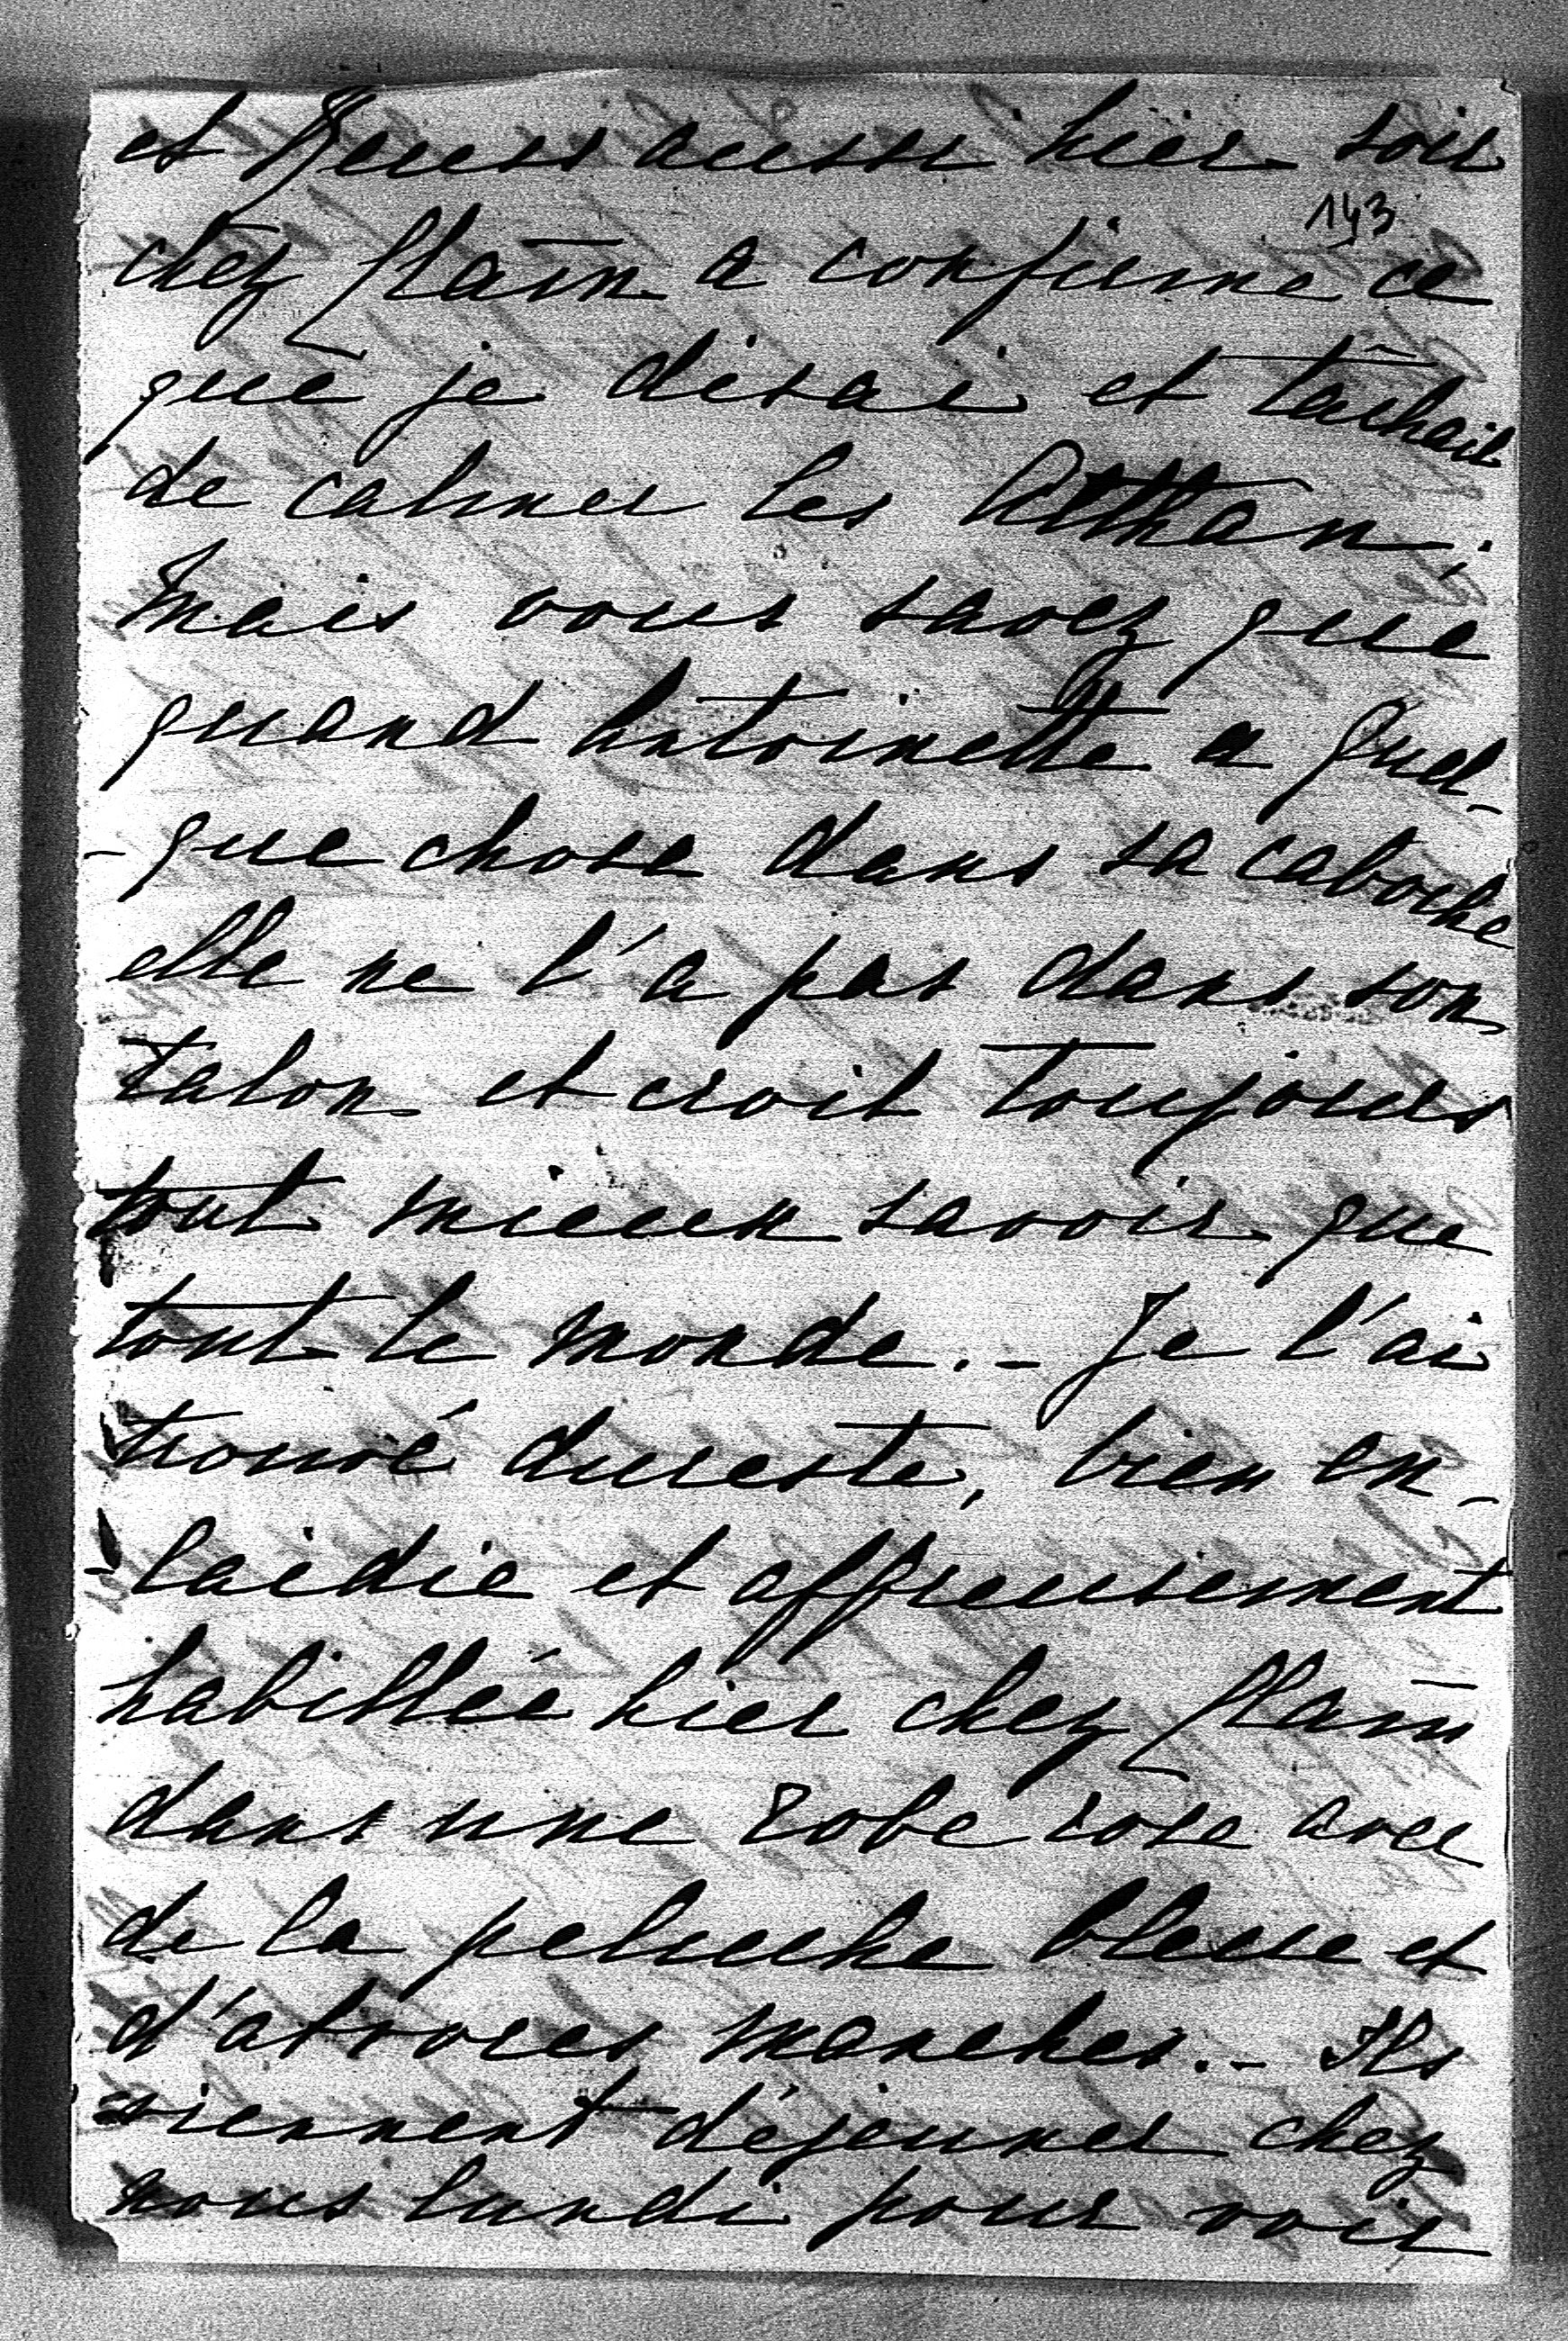 et Reuss aussi hier soir
143
chez Plain a confirmé ce
que je disai et tachait
de calmer les Arthan,
mais vous savez que
quand Antoinette a quel-
-que chose dans sa caboche
elle ne l'a pas dans son
talon et croit toujours
tout mieux savoir que
tout le monde. - Je l'ai
trouvé dureste, bien en-
-laidie et affreusement
habillée hier chez Plain
dans une robe rose avec
de la peluche bleue et
d'atroces manches. - Ils
viennent déjeuner chez
nous lundi pour voir